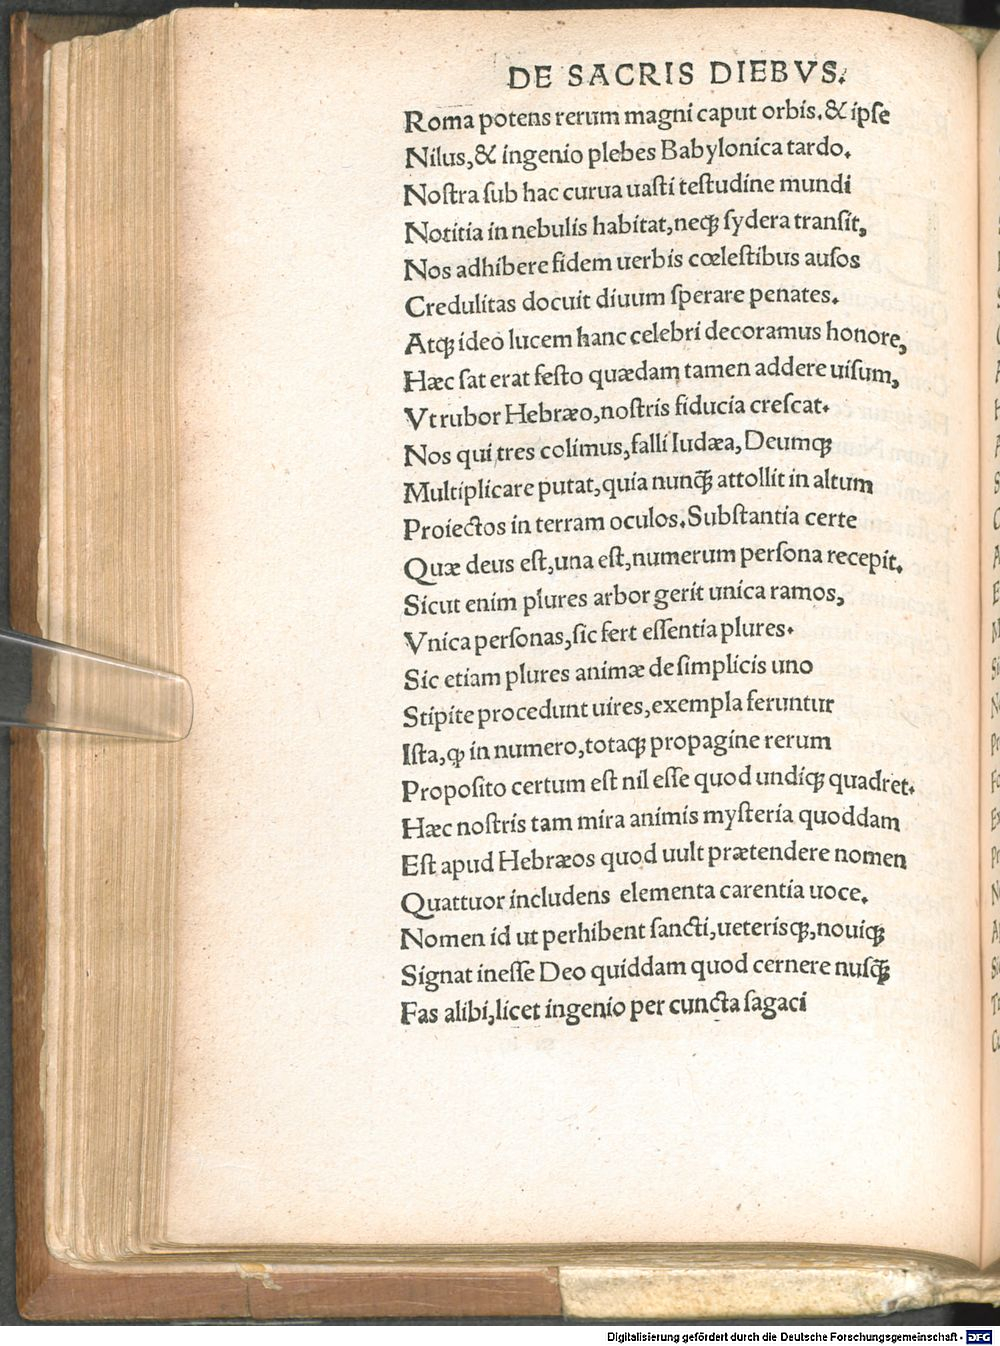 DE SACRIS DIEBVS.
Roma potens rerum magni caput orbis.& ipſe
Nilus,& ingenio plebes Babylonica tardo.
Noſtra ſub hac curua uaſti teſtudine mundi
Notitia in nebulis habitat,neqꝫ ſydera tranſit,
Nos adhibere fidem uerbis cœleſtibus auſos
Credulitas docuit diuum ſperare penates.
Atqꝫ ideo lucem hanc celebri decoramus honore,
Hæc ſat erat feſto quædam tamen addere uiſum,
Vt rubor Hebræo,noſtris fiducia creſcat.
Nos qui tres colimus,falli Iudæa,Deumqꝫ
Multiplicare putat,quia nunq̃ꝫ attollit in altum
Proiectos in terram oculos.Subſtantia certe
Quæ deus eſt,una eſt,numerum perſona recepit.
Sicut enim plures arbor gerit unica ramos,
Vnica perſonas,ſic fert eſſentia plures.
Sic etiam plures animæ de ſimplicis uno
Stipite procedunt uires,exempla feruntur
Iſta,ꝙ in numero,totaqꝫ propagine rerum
Propoſito certum eſt nil eſſe quod undiqꝫ quadret.
Hæc noſtris tam mira animis myſteria quoddam
Eſt apud Hebræos quod uult prætendere nomen
Quattuor includens elementa carentia uoce.
Nomen id ut perhibent ſancti,ueterisqꝫ,nouiqꝫ
Signat ineſſe Deo quiddam quod cernere nuſq̃ꝫ
Fas alibi,licet ingenio per cuncta ſagaci
Digitalisierung gefördert durch die Deutsche Forschungsgemeinschaft - DFG